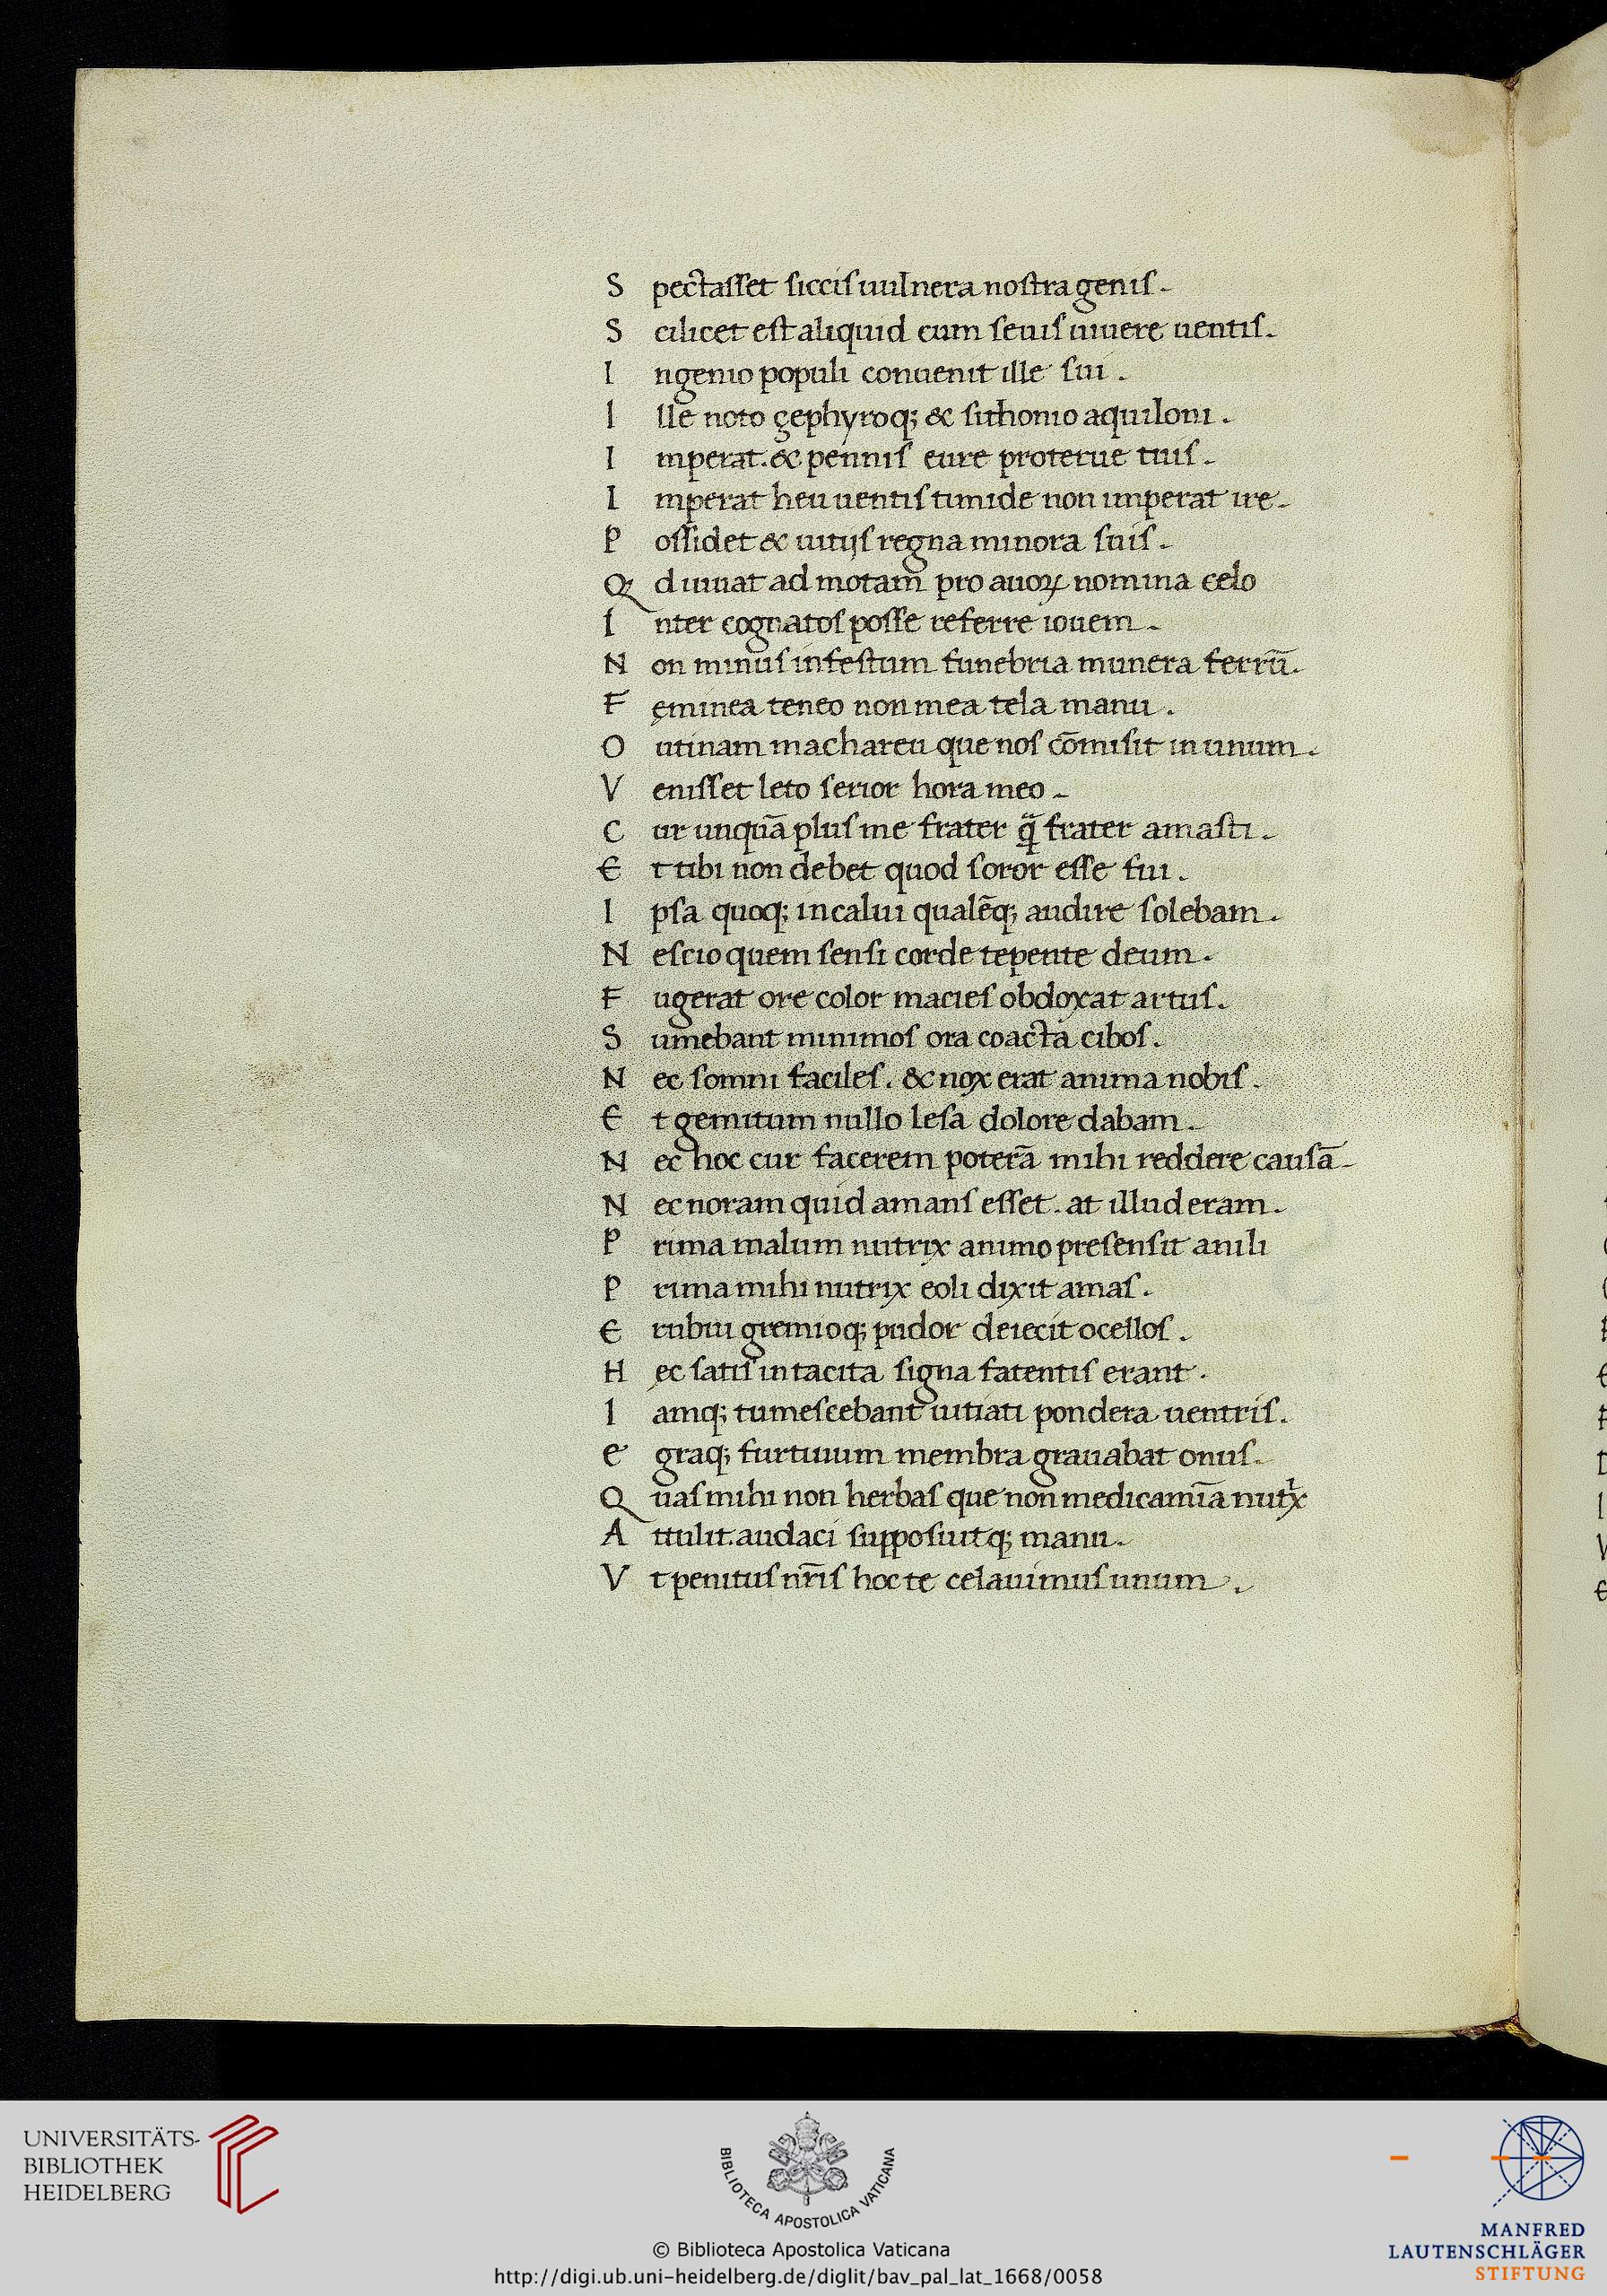 S pectasset siccis uulnera nostra genis.
S cilicet est aliquid cum seuis uiuere uentis.
I ngenio populi conuenit ille sui.
I lle noto zephyroq; & sithonio aquiloni.
I mperat. & pennis eure proterue tuis.
I mperat heu uentis timide non imperat ire.
P ossidet & uitijs regna minora suis.
Q d iuuat ad motam pro auoꝝ nomina celo
I nter cognatos posse referre iouem.
N on minus infestum funebria munera ferrū.
F ęminea teneo non mea tela manu.
O utinam machareu que nos cōmisit in unum.
V enisset leto serior hora meo.
C ur unquā plus me frater q̄ frater amasti.
E t tibi non debet quod soror esse fui.
I psa quoq; incalui qualēq; audire solebam.
N escio quem sensi corde tepente deum.
F ugerat ore color macies obdoxat artus.
S umebant minimos ora coacta cibos.
N ec somni faciles. & nox erat anima nobis.
E t gemitum nullo lesa dolore dabam.
N ec hoc cur facerem poterā mihi reddere causā
N ec noram quid amans esset. at illud eram.
P rima malum nutrix animo presensit anili
P rima mihi nutrix eoli dixit amas.
E rubui gremioq; pudor deiecit ocellos.
H ęc satis in tacita signa fatentis erant.
I amq; tumescebant uitiati pondera uentris.
e graq; furtiuum membra grauabat onus.
Q uas mihi non herbas que non medicamīa nutⁱx
A ttulit. audaci supposuitq; manu.
V t penitus nr̄is hoc te celauimus unum.
UNIVERSITÄTS-
BIBLIOTHEK
HEIDELBERG
BIBLIOTECA APOSTOLICA VATICANA
© Biblioteca Apostolica Vaticana
http://digi.ub.uni-heidelberg.de/diglit/bav_pal_lat_1668/0058
MANFRED
LAUTENSCHLÄGER
STIFTUNG